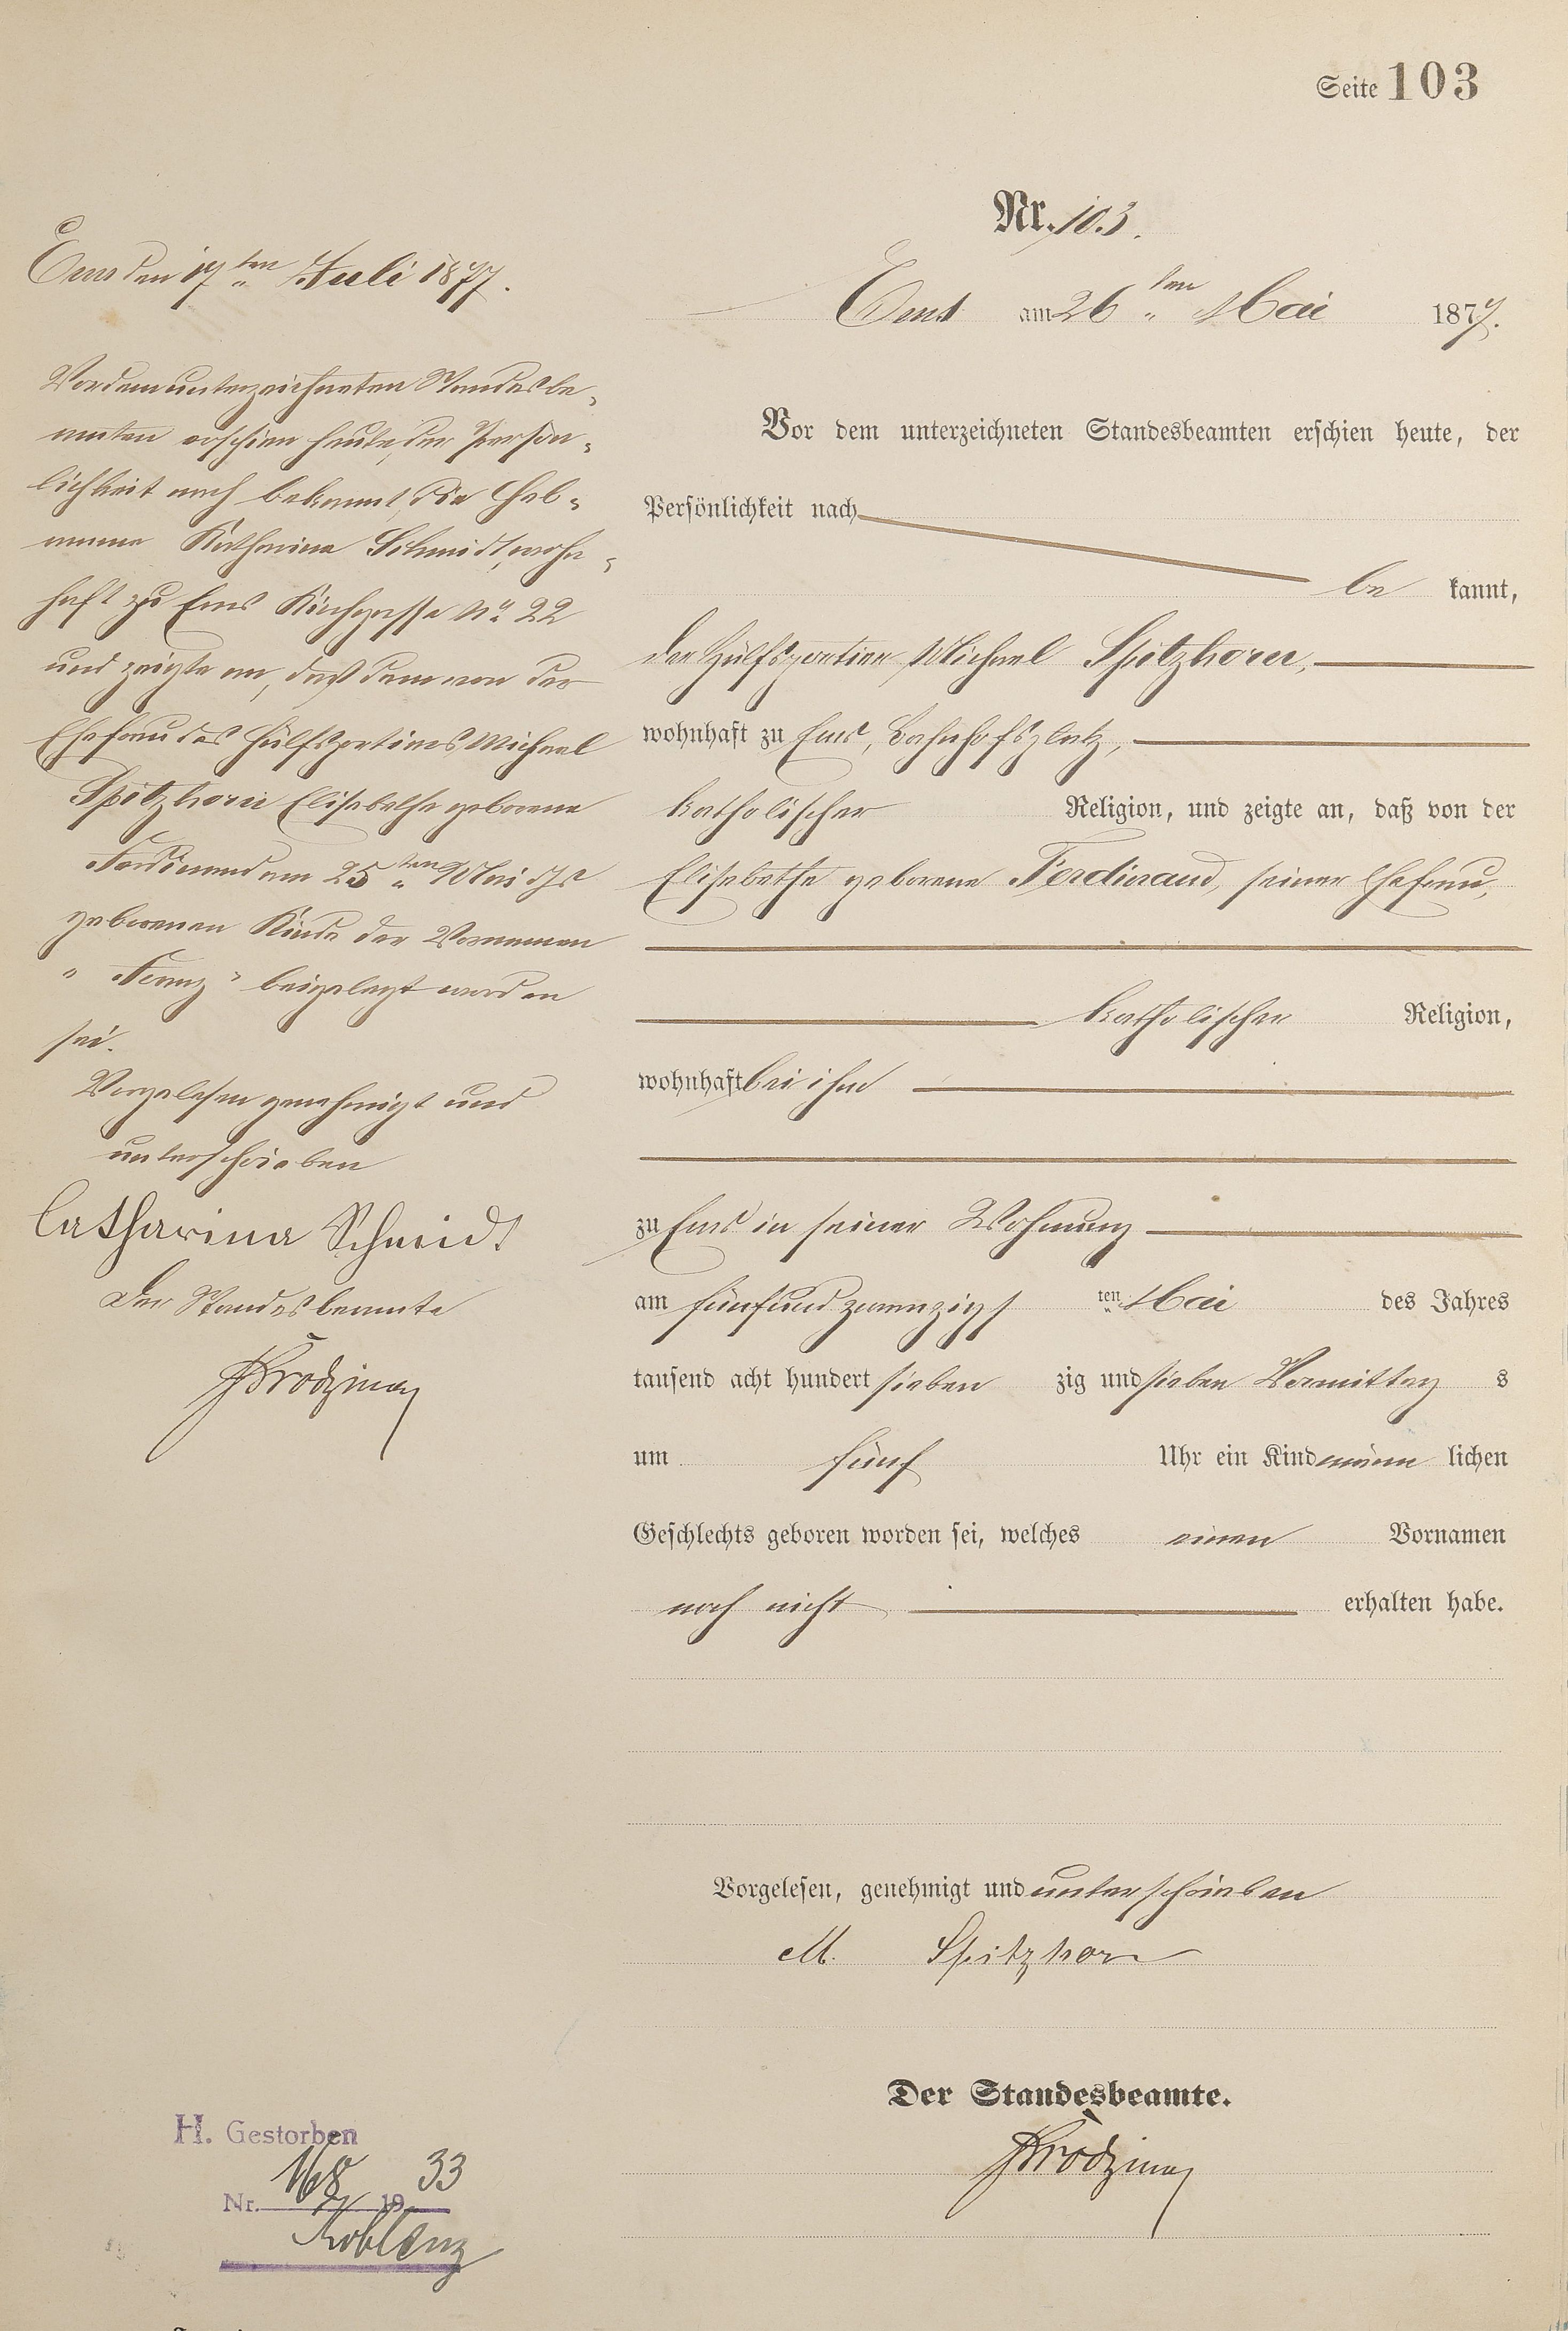 Seite 103
Nr. 103.
Ems am 26ten Mai 1877.
Vor dem unterzeichneten Standesbeamten erschien heute, der
Persönlichkeit nach
be kannt,
der Hülfsportier Michael Spitzhorn,
wohnhaft zu Ems, Bahnhofsplatz,
katholischer Religion, und zeigte an, daß von der
Elisabethe geborene Ferdinand, seiner Ehefrau,
katholischer Religion,
wohnhaft bei ihm
zu Ems in seiner Wohnung
am fünfundzwanzigsten Mai des Jahres
tausend acht hundert sieben zig und sieben Vormittag s
um fünf Uhr ein Kind männ lichen
Geschlechts geboren worden sei, welches einen Vornamen
noch nicht erhalten habe.
Vorgelesen, genehmigt und unterschrieben
M. Spitzhorn
Der Standesbeamte.
Ems den 17ten Juli 1877.
Vor dem unterzeichneten Standesbe-
amten erschien heute, der Person-
lichkeit nach bekannt, die Heb-
amme Katharina Schmidt, wohn-
haft zu Ems Kirchgasse No. 22
und zeigte an, daß dem von der
Ehefrau des Hülfsportiers Michael
Spitzhorn Elisabethe geborene
Ferdinand am 25ten Mai d. Js
geborenen Kinde der Vornamen
"Franz" beigelegt worden
sei.
Vorgelesen genehmigt und
unterschrieben
Catharina Schmidt
Der Standesbeamte
H. Gestorben
Nr. 1933
Koblenz